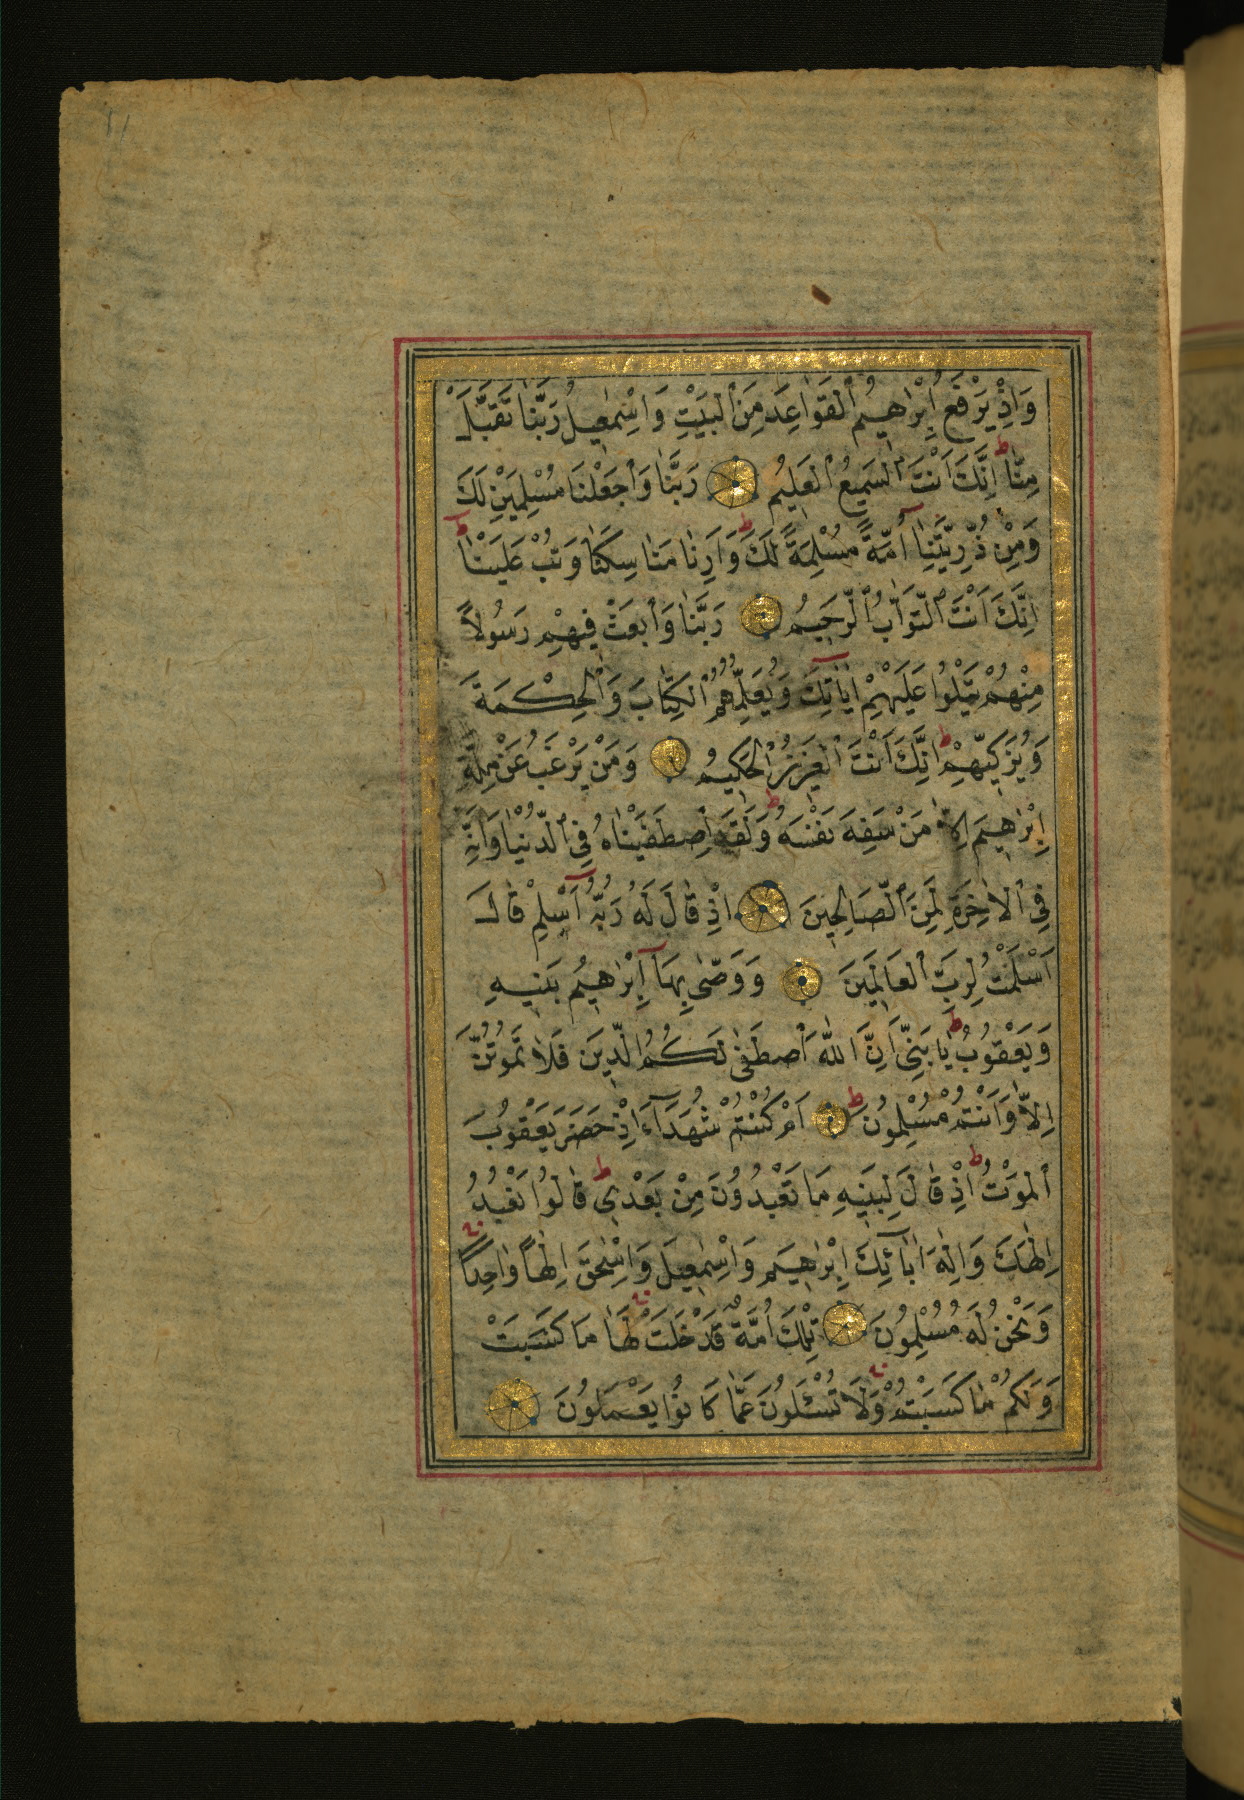 وَاِذْ يَرْفَعُ اِبْرٰهٖيمُ الْقَوَاعِدَ مِنَ الْبَيْتِ وَاِسْمٰعٖيلُ رَبَّنَا تَقَبَّلْ
مِنَّا ط اِنَّكَ اَنْتَ السَّمٖيعُ الْعَلٖيمُ رَبَّنَا وَاجْعَلْنَا مُسْلِمَيْنِ لَكَ
وَمِنْ ذُرِّيَّتِنَا اُمَّةً مُسْلِمَةً لَكَ ط وَاَرِنَا مَنَاسِكَنَا وَتُبْ عَلَيْنَا ط
اِنَّكَ اَنْتَ التَّوَّابُ الرَّحٖيمُ رَبَّنَا وَابْعَثْ فٖيهِمْ رَسُولاً
مِنْهُمْ يَتْلُوا عَلَيْهِمْ اٰيَاتِكَ وَيُعَلِّمُهُمُ الْكِتَابَ وَالْحِكْمَةَ
وَيُزَكّٖيهِمْ ط اِنَّكَ اَنْتَ الْعَزٖيزُ الْحَكٖيمُ وَمَنْ يَرْغَبُ عَنْ مِلَّةِ
اِبْرٰهٖيمَ اِلاَّ مَنْ سَفِهَ نَفْسَهُ ط وَلَقَدِ اصْطَفَيْنَاهُ فِي الدُّنْيَا وَاِنَّهُ
فِي الْاٰخِرَةِ لَمِنَ الصَّالِحٖينَ اِذْ قَالَ لَهُ رَبُّهُ اَسْلِمْ قَالَ
اَسْلَمْتُ لِرَبِّ الْعَالَمٖينَ وَوَصّٰى بِهَا اِبْرٰهٖيمُ بَنٖيهِ
وَيَعْقُوبُ ط يَا بَنِيَّ اِنَّ اللّٰهَ اصْطَفٰى لَكُمُ الدّٖينَ فَلَا تَمُوتُنَّ
اِلاَّ وَاَنْتُمْ مُسْلِمُونَ ط اَمْ كُنْتُمْ شُهَدَآءَ اِذْ حَضَرَ يَعْقُوبَ
الْمَوْتُ ط اِذْ قَالَ لِبَنٖيهِ مَا تَعْبُدُونَ مِنْ بَعْدٖي ط قَالُوا نَعْبُدُ
اِلٰهَكَ وَاِلٰهَ اٰبَآئِكَ اِبْرٰهٖيمَ وَاِسْمٰعٖيلَ وَاِسْحٰقَ اِلٰهًا وَاحِدًا
وَنَحْنُ لَهُ مُسْلِمُونَ تِلْكَ اُمَّةٌ قَدْ خَلَتْ لَهَا مَا كَسَبَتْ
وَلَكُمْ مَا كَسَبْتُمْ وَلَا تُسْئَلُونَ عَمَّا كَانُوا يَعْمَلُونَ